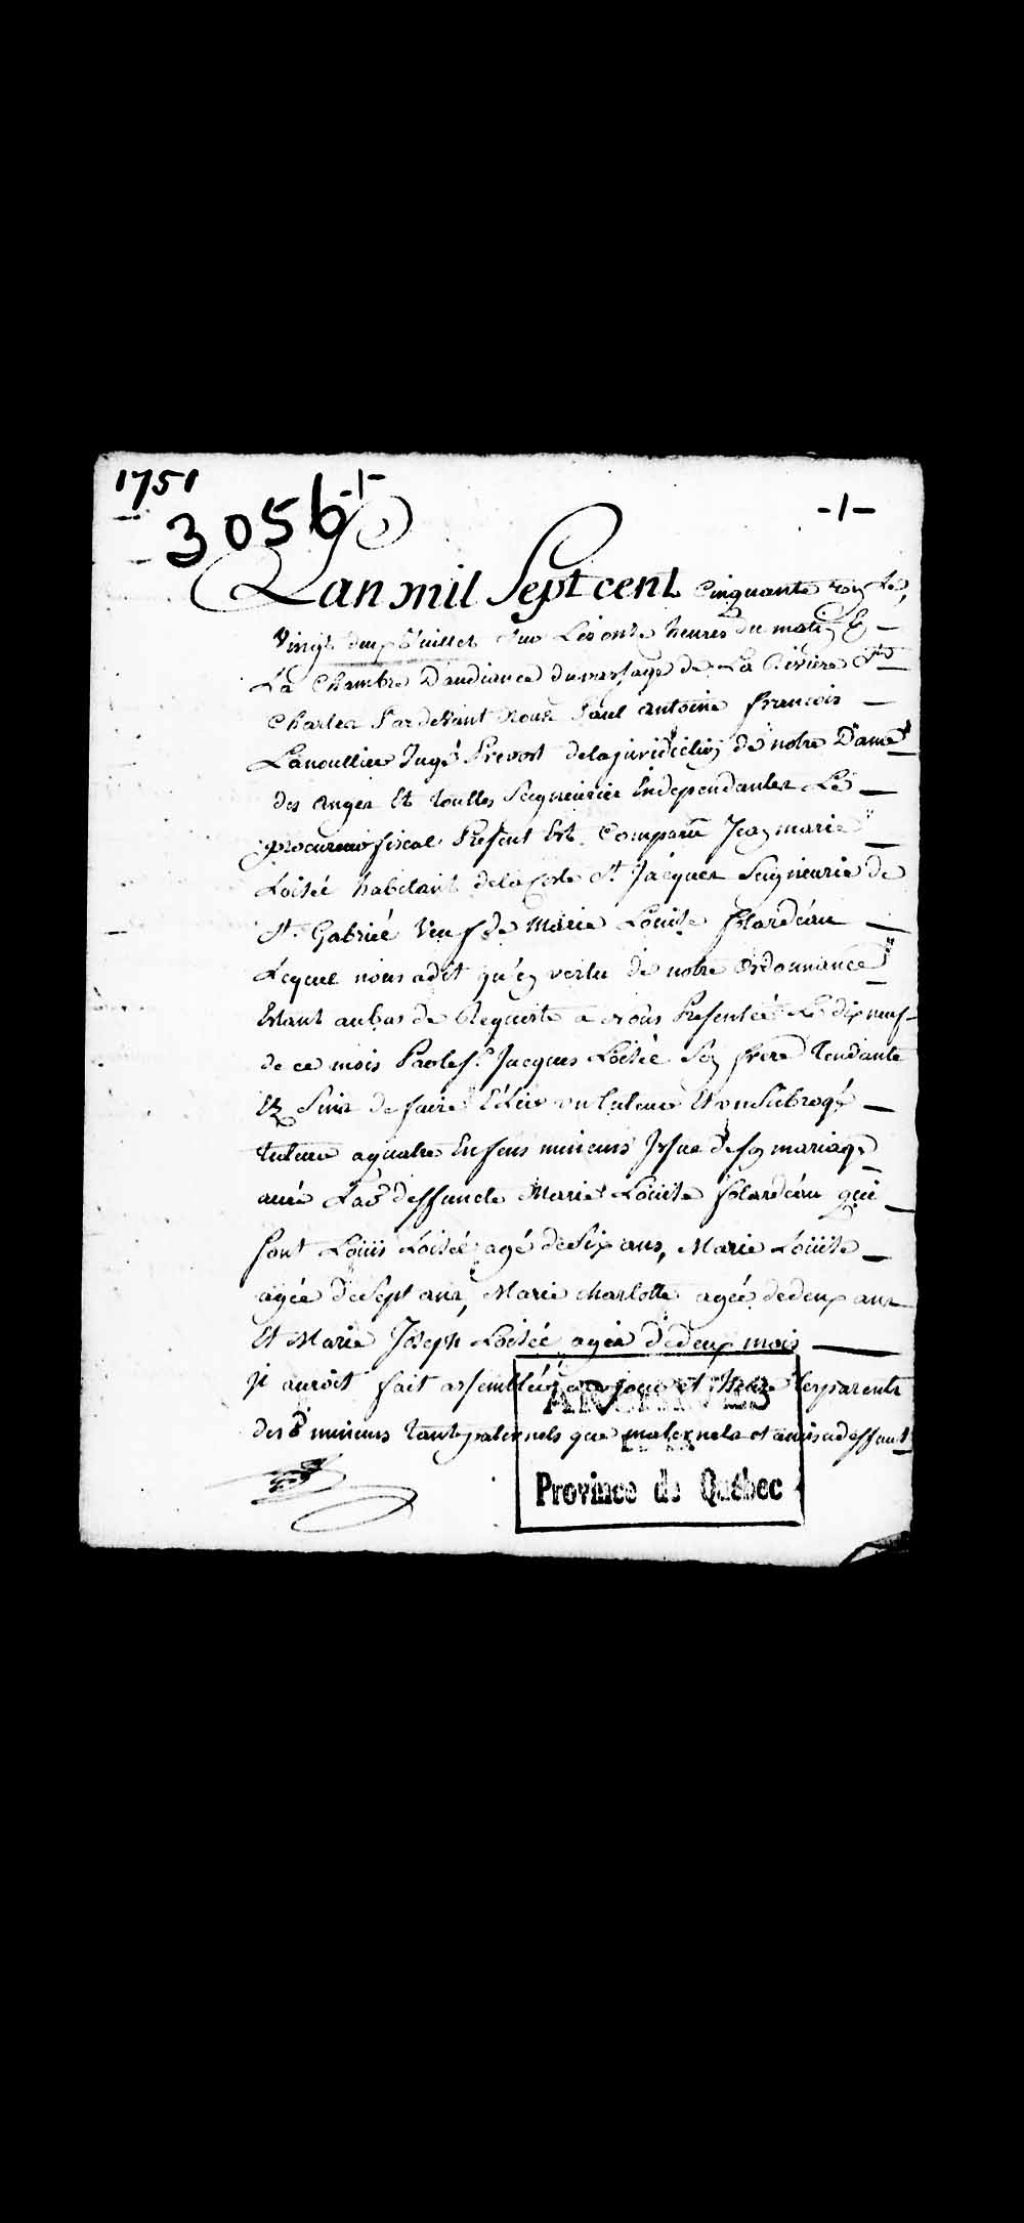 1751
3056 -1-
-1-
Lan mil Sept cent Cinquante un Le
Vingt deux Juillet Sur Les onze heures du matin En
La Chambre Daudiance du passage de La Riviere St
Charles Pardevant Nous Paul antoine francois
Lanoullier Juge Prevost de la juridiction de notre Dame
des anges Et touttes Seigneuries Independantes Le
procureur fiscal Present Est Comparu Jean marie
Loisée habitant de la Coste St Jacques Seigneurie de
St Gabriel Veuf de Marie Louise falardeau
Lequel nous a dit qu'en vertu de notre Ordonnance
Estant au bas de Requeste a Nous Presentée Le dix neuf
de ce mois Par le Sr Jacques Loisée Son frere Tendante
Es fins de faire Elire un tuteur Et un Subrogé
tuteur a quatre Enfens mineurs Issue de son mariage
avec La de deffuncte Marie Louise falardeau qui
Sont Louis Loisée agé de Six ans, Marie Louise
agée de Sept ans, Marie charlotte agée de deux ans
Et Marie Joseph Loisée agée de deux mois
Il auroit fait assembler a ce jour et heure les parents
des d mineurs tant paternels que maternels et amis a deffaut
ARCHIVES
DE LA
Province de Québec